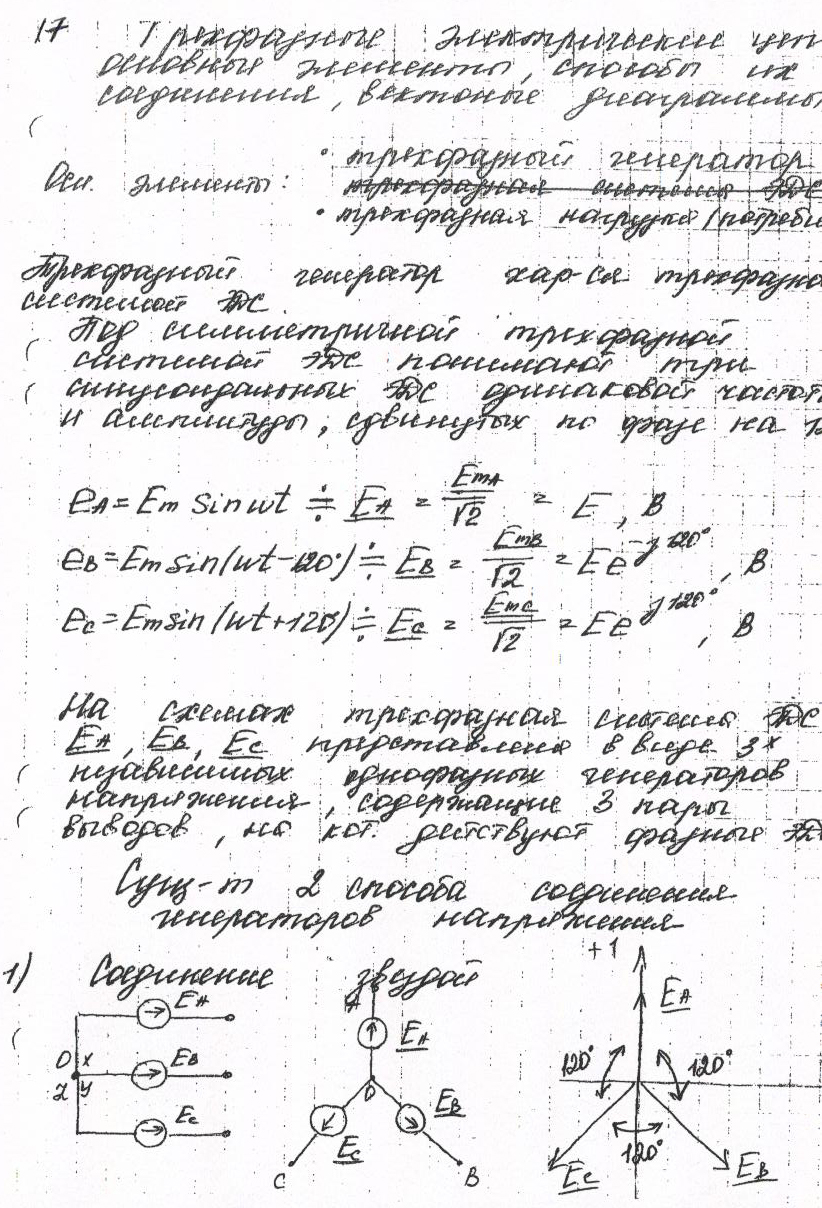 17 Трехфазные электрические цеп
основные элементы, способы их
соединения, вектоные диаграммы
Осн. элементы: • трехфазный генератор
трехфазная система ЭДС
• трехфазная нагрузка (потреби
Трехфазный генератор хар-ся трехфазно
системой ЭДС
Под симметричной трехфазной
системой ЭДС понимают три
синусоидальных ЭДС одинаковой частот
и амплитуды, сдвинутых по фазе на 12
eA = Em sin wt ≑ EA = EmA/√2 = E, В
eB = Em sin(wt-120°) ≑ EB = EmB/√2 = Ee^-j120°, В
eC = Em sin(wt+120°) ≑ EC = EmC/√2 = Ee^j120°, В
На схемах трехфазная система ЭДС
EA, EB, EC представлена в виде 3х
независимых однофазных генераторов
напряжения, содержащие 3 пары
выводов, на кот. действуют фазные ЭД
Сущ-т 2 способа соединения
генераторов напряжения
1) Соединение звездой
EA
O X EB
Z Y
EC
A
EA
O
EB
EC
C B
+1
EA
120° 120°
120°
EC EB